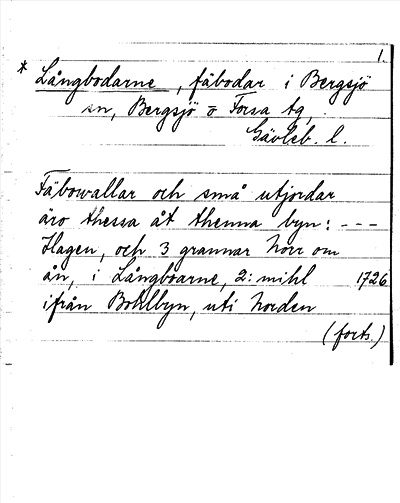 1.
* Långbodarne, fäbodar i Bergsjö
sn, Bergsjö o Forsa tg,
Gävleb. l.
Fäbowallar och små utjordar
äro thessa åt thenna byn: ---
Hagen, och 3 grannar norr om
ån, i Långboarne, 2: mihl 1726
ifrån Bohlbyn, uti Norden
(forts.)